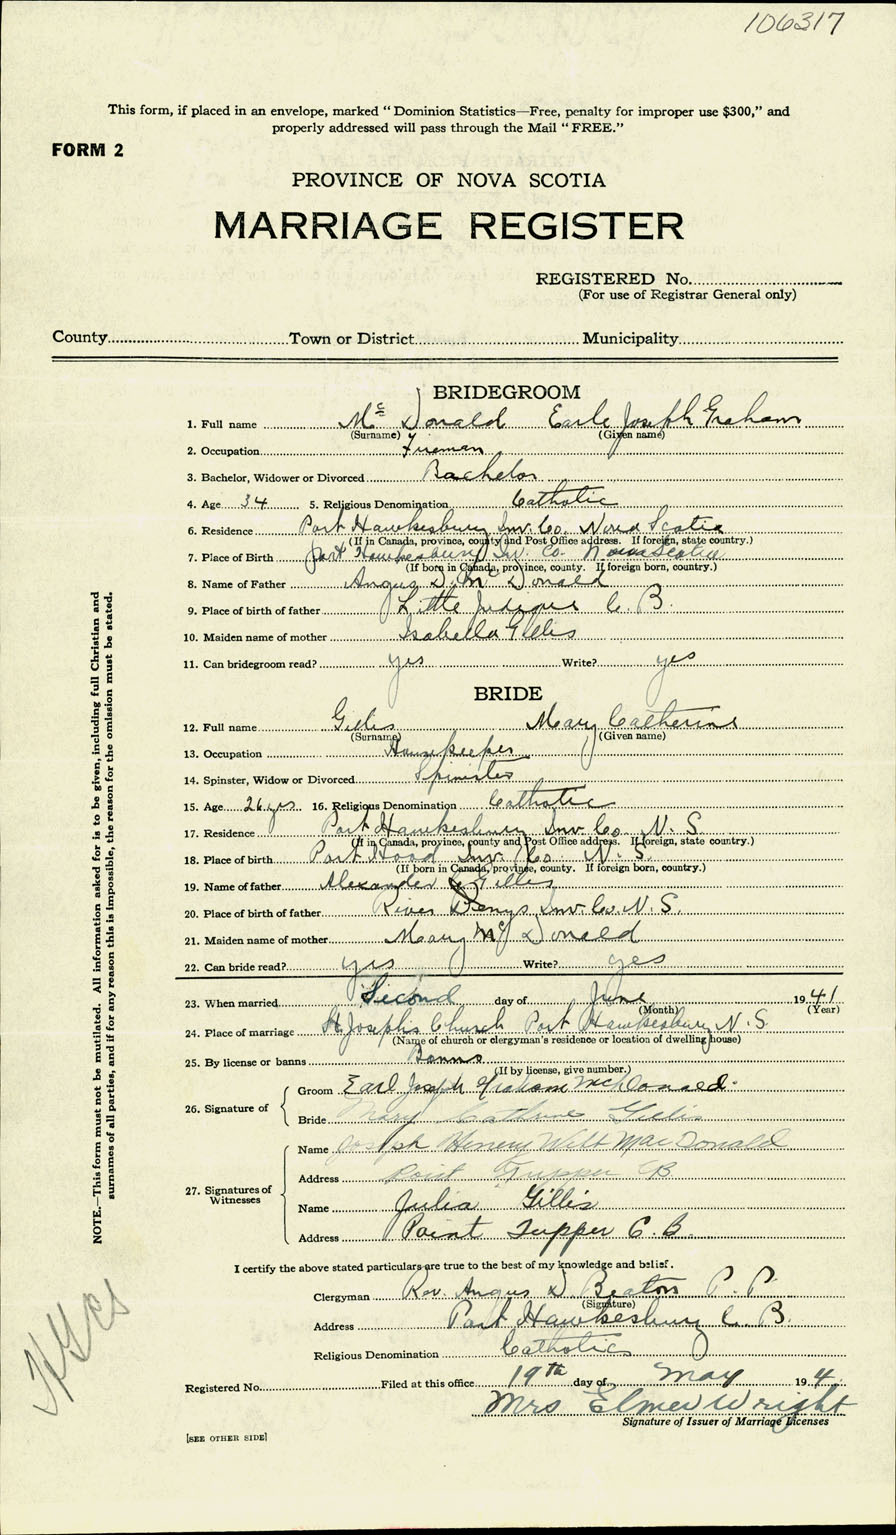 106317
This form, if placed in an envelope, marked "Dominion Statistics—Free, penalty for improper use $300," and
properly addressed will pass through the Mail "FREE."
FORM 2
PROVINCE OF NOVA SCOTIA
MARRIAGE REGISTER
REGISTERED No.
(For use of Registrar General only)
County Town or District Municipality
BRIDEGROOM
1. Full name McDonald Earle Joseph Graham
(Surname) (Given name)
2. Occupation Fireman
3. Bachelor, Widower or Divorced Bachelor
4. Age 34 5. Religious Denomination Catholic
6. Residence Port Hawkesbury Inv. Co. Nova Scotia
(If in Canada, province, county and Post Office address. If foreign, state country.)
7. Place of Birth Port Hawkesbury Inv. Co. Nova Scotia
(If born in Canada, province, county. If foreign born, country.)
8. Name of Father Angus D. McDonald
9. Place of birth of father Little Judique C. B.
10. Maiden name of mother Isabella Gillis
11. Can bridegroom read? yes Write? yes
BRIDE
12. Full name Gillis Mary Catherine
(Surname) (Given name)
13. Occupation Housekeeper
14. Spinster, Widow or Divorced Spinster
15. Age 26 yrs 16. Religious Denomination Catholic
17. Residence Port Hawkesbury Inv. Co. N. S.
(If in Canada, province, county and Post Office address. If foreign, state country.)
18. Place of birth Port Hood Inv. Co. N. S.
(If born in Canada, province, county. If foreign born, country.)
19. Name of father Alexander Gillis
20. Place of birth of father River Denys Inv. Co. N. S.
21. Maiden name of mother Mary McDonald
22. Can bride read? yes Write? yes
23. When married Second day of June 1941
(Month) (Year)
24. Place of marriage St Joseph's Church Port Hawkesbury N. S.
(Name of church or clergyman's residence or location of dwelling house)
25. By license or banns Banns
(If by license, give number.)
26. Signature of Groom Earl Joseph Graham McDonald.
Bride Mary Cathrine Gillis
27. Signatures of Witnesses
Name Joseph Henery Wilt MacDonald
Address Point Tupper C B
Name Julia Gillis
Address Point Tupper C. B.
I certify the above stated particulars are true to the best of my knowledge and belief.
Clergyman Rev. Angus D. Beaton P. P.
(Signature)
Address Port Hawkesbury C. B.
Religious Denomination Catholic
Registered No. Filed at this office 19th day of May 194
Mrs Elmer Wright
Signature of Issuer of Marriage Licenses
[SEE OTHER SIDE]
NOTE.—This form must not be mutilated. All information asked for is to be given, including full Christian and
surnames of all parties, and if for any reason this is impossible, the reason for the omission must be stated.